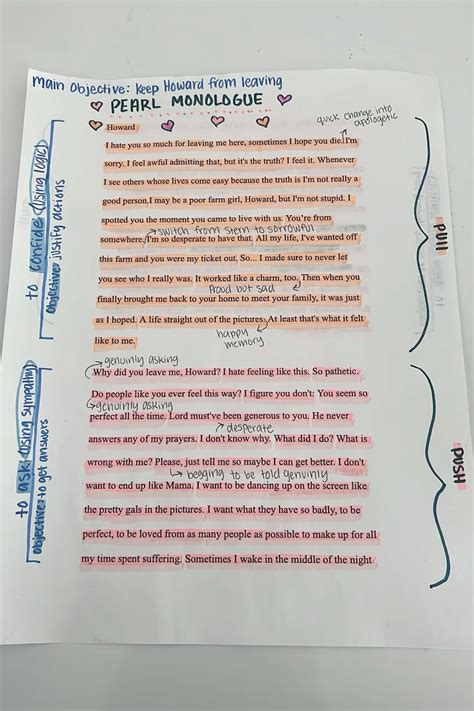 main Objective: Keep Howard from leaving
PEARL MONOLOGUE
quick change into apologetic
Howard
I hate you so much for leaving me here, sometimes I hope you die. I'm
sorry. I feel awful admitting that, but it's the truth? I feel it. Whenever
I see others whose lives come easy because the truth is I'm not really a
good person,I may be a poor farm girl, Howard, but I'm not stupid. I
spotted you the moment you came to live with us. You're from
switch from stern to sorrowful
somewhere. I'm so desperate to have that. All my life, I've wanted off
this farm and you were my ticket out. So... I made sure to never let
you see who I really was. It worked like a charm, too. Then when you
Proud but sad
finally brought me back to your home to meet your family, it was just
as I hoped. A life straight out of the pictures. At least that's what it felt
like to me.
happy memory
to confide (using logic)
objective: justify actions
PULL
genuinly asking
Why did you leave me, Howard? I hate feeling like this. So pathetic.
Do people like you ever feel this way? I figure you don't. You seem so
genuinly asking
perfect all the time. Lord must've been generous to you. He never
desperate
answers any of my prayers. I don't know why. What did I do? What is
wrong with me? Please, just tell me so maybe I can get better. I don't
begging to be told genuinly
want to end up like Mama. I want to be dancing up on the screen like
the pretty gals in the pictures. I want what they have so badly, to be
perfect, to be loved from as many people as possible to make up for all
my time spent suffering. Sometimes I wake in the middle of the night
to ask (using sympathy)
objective: to get answers
PUSH